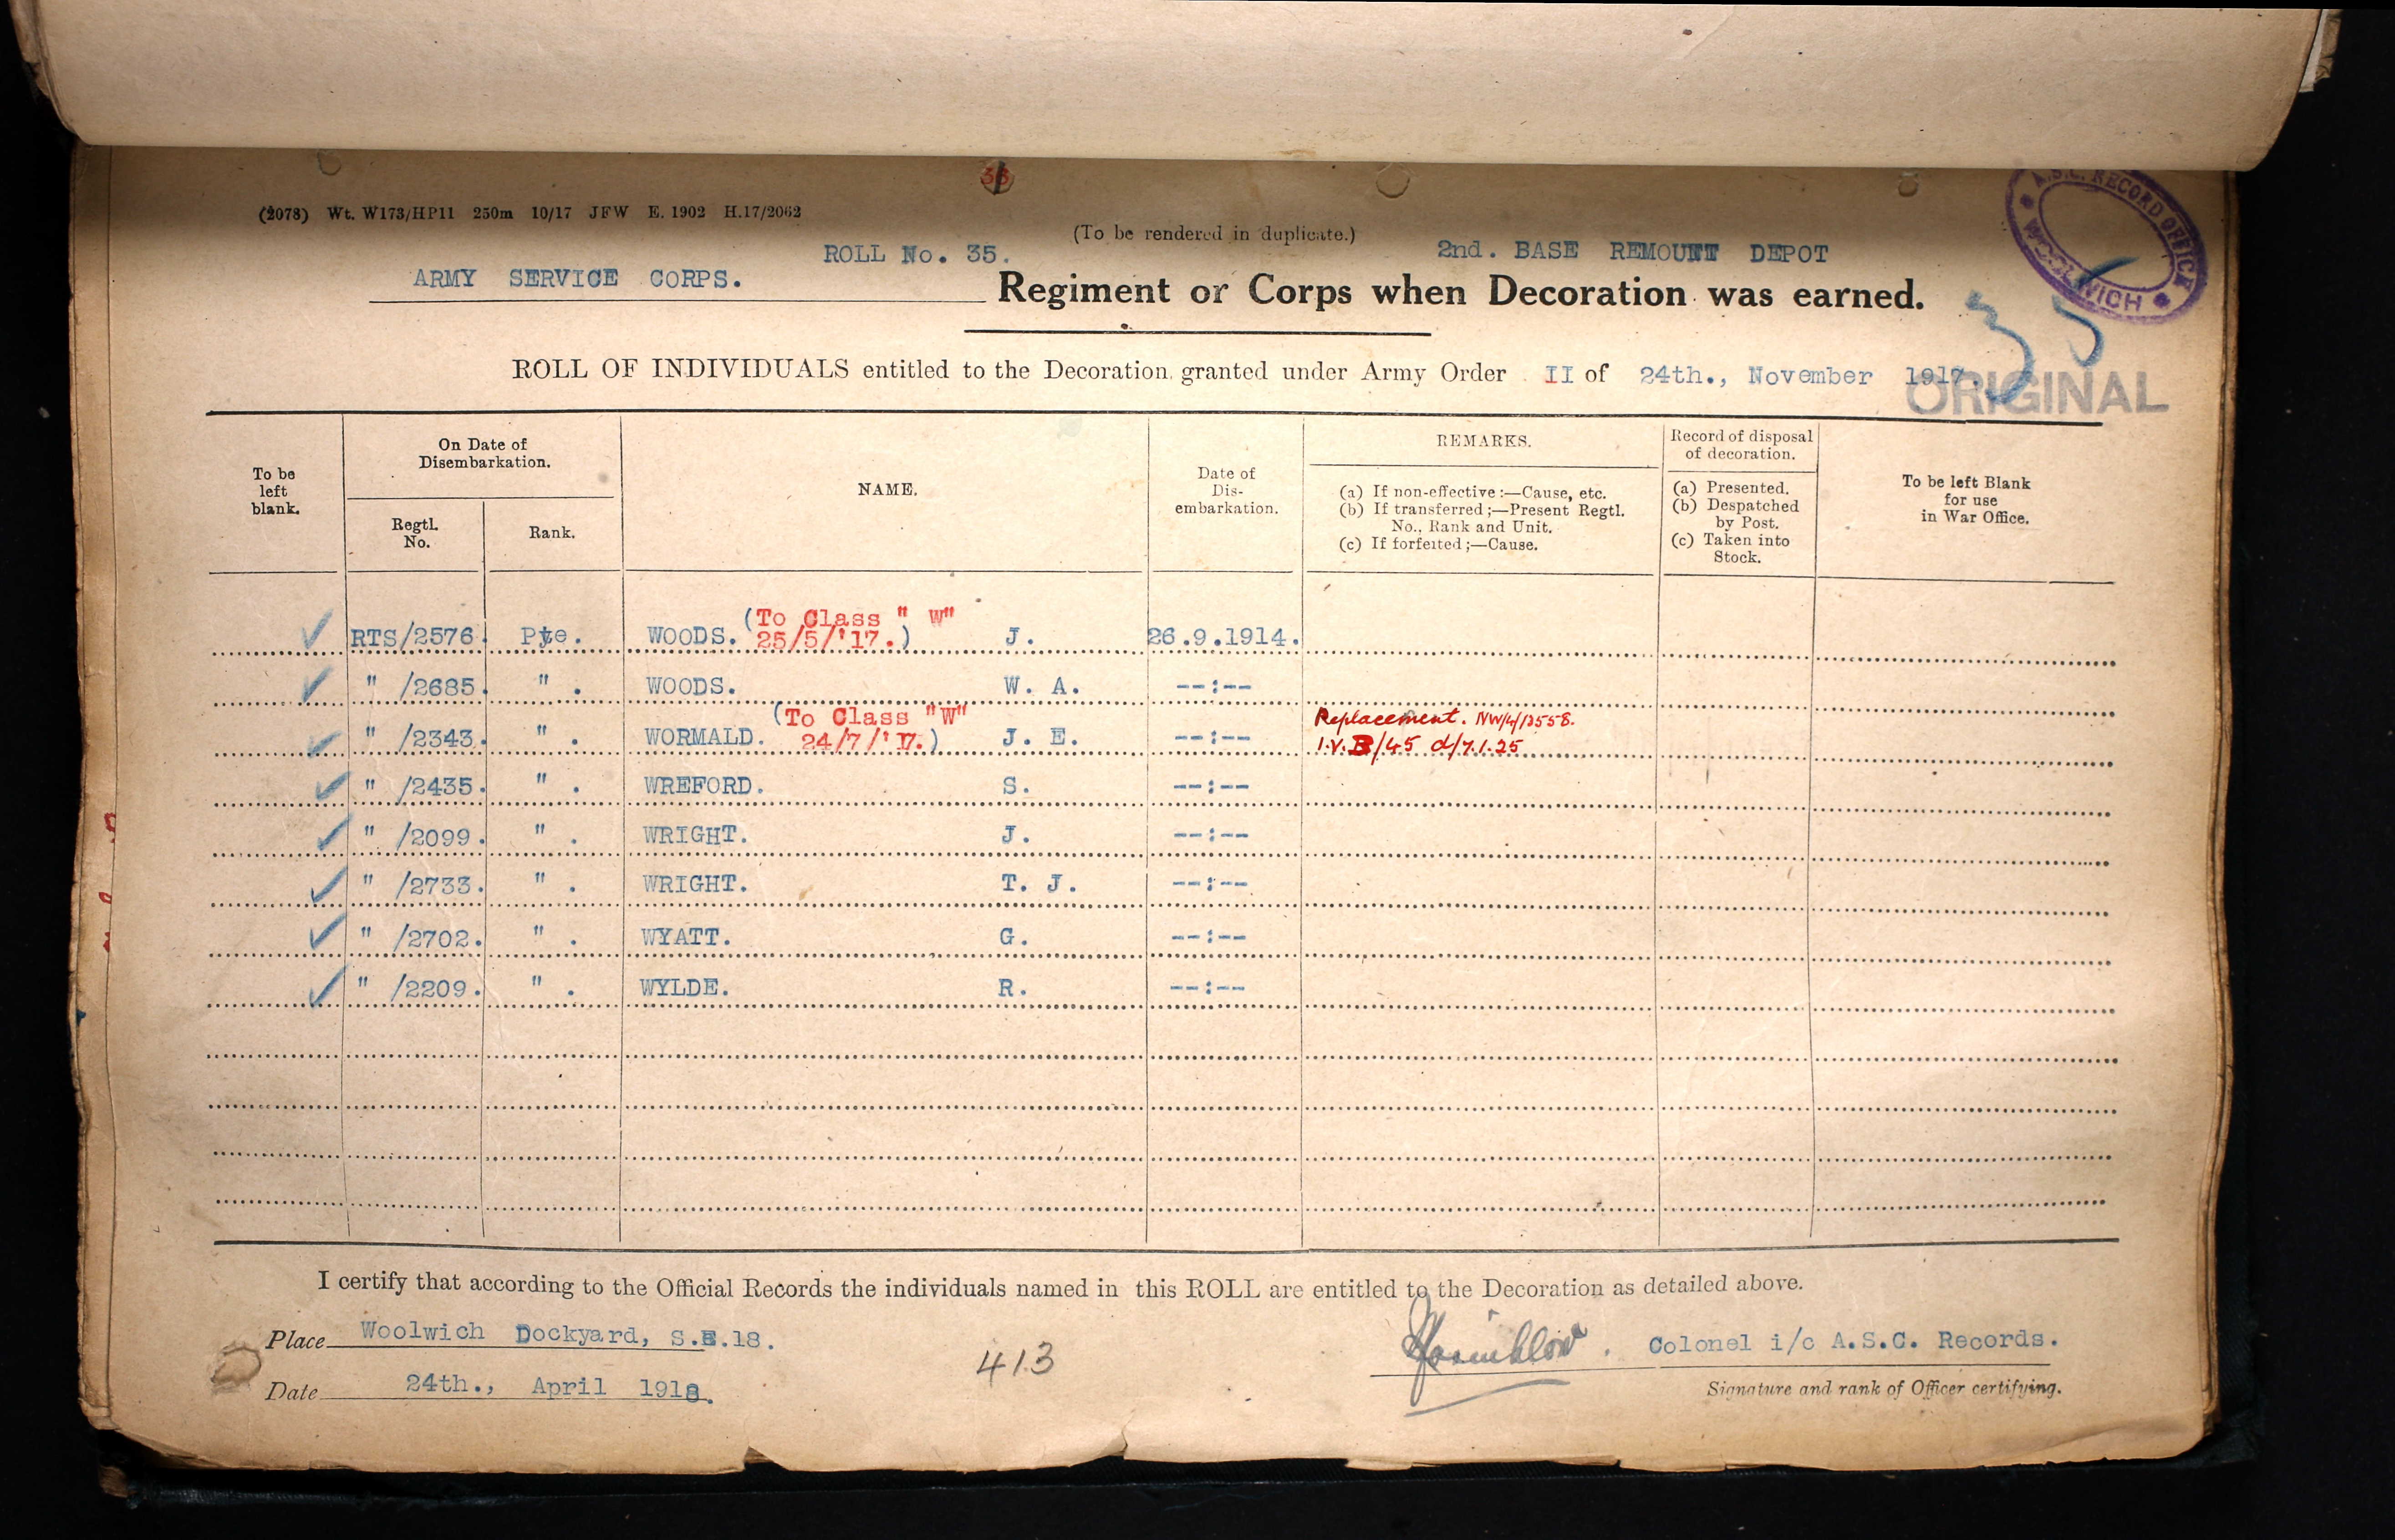 (2078) Wt. W173/HP11 250m 10/17 JFW E. 1902 H.17/2062
(To be rendered in duplicate.)
A.S.C. RECORD OFFICE WOOLWICH
ROLL No. 35. 2nd. BASE REMOUNT DEPOT
ARMY SERVICE CORPS. Regiment or Corps when Decoration was earned.
35
ROLL OF INDIVIDUALS entitled to the Decoration granted under Army Order II of 24th., November 1917.
ORIGINAL
To be left blank.
On Date of Disembarkation.
Regtl. No.
Rank.
NAME.
Date of Dis-embarkation.
REMARKS.
(a) If non-effective :—Cause, etc.
(b) If transferred ;—Present Regtl. No., Rank and Unit.
(c) If forfeited ;—Cause.
Record of disposal of decoration.
(a) Presented.
(b) Despatched by Post.
(c) Taken into Stock.
To be left Blank for use in War Office.
(To Class " W"
RTS/2576. Pte. WOODS. 25/5/'17.) J. 26.9.1914.
" /2685. " . WOODS. W. A. --:--
(To Class "W" Replacement. NW/4/13558.
" /2343. " . WORMALD. 24/7/'17.) J. E. --:-- I.V. B/45 d/7.1.25
" /2435. " . WREFORD. S. --:--
" /2099. " . WRIGHT. J. --:--
" /2733. " . WRIGHT. T. J. --:--
" /2702. " . WYATT. G. --:--
" /2209. " . WYLDE. R. --:--
I certify that according to the Official Records the individuals named in this ROLL are entitled to the Decoration as detailed above.
Place Woolwich Dockyard, S.E.18. Colonel i/c A.S.C. Records.
413
Date 24th., April 1918. Signature and rank of Officer certifying.